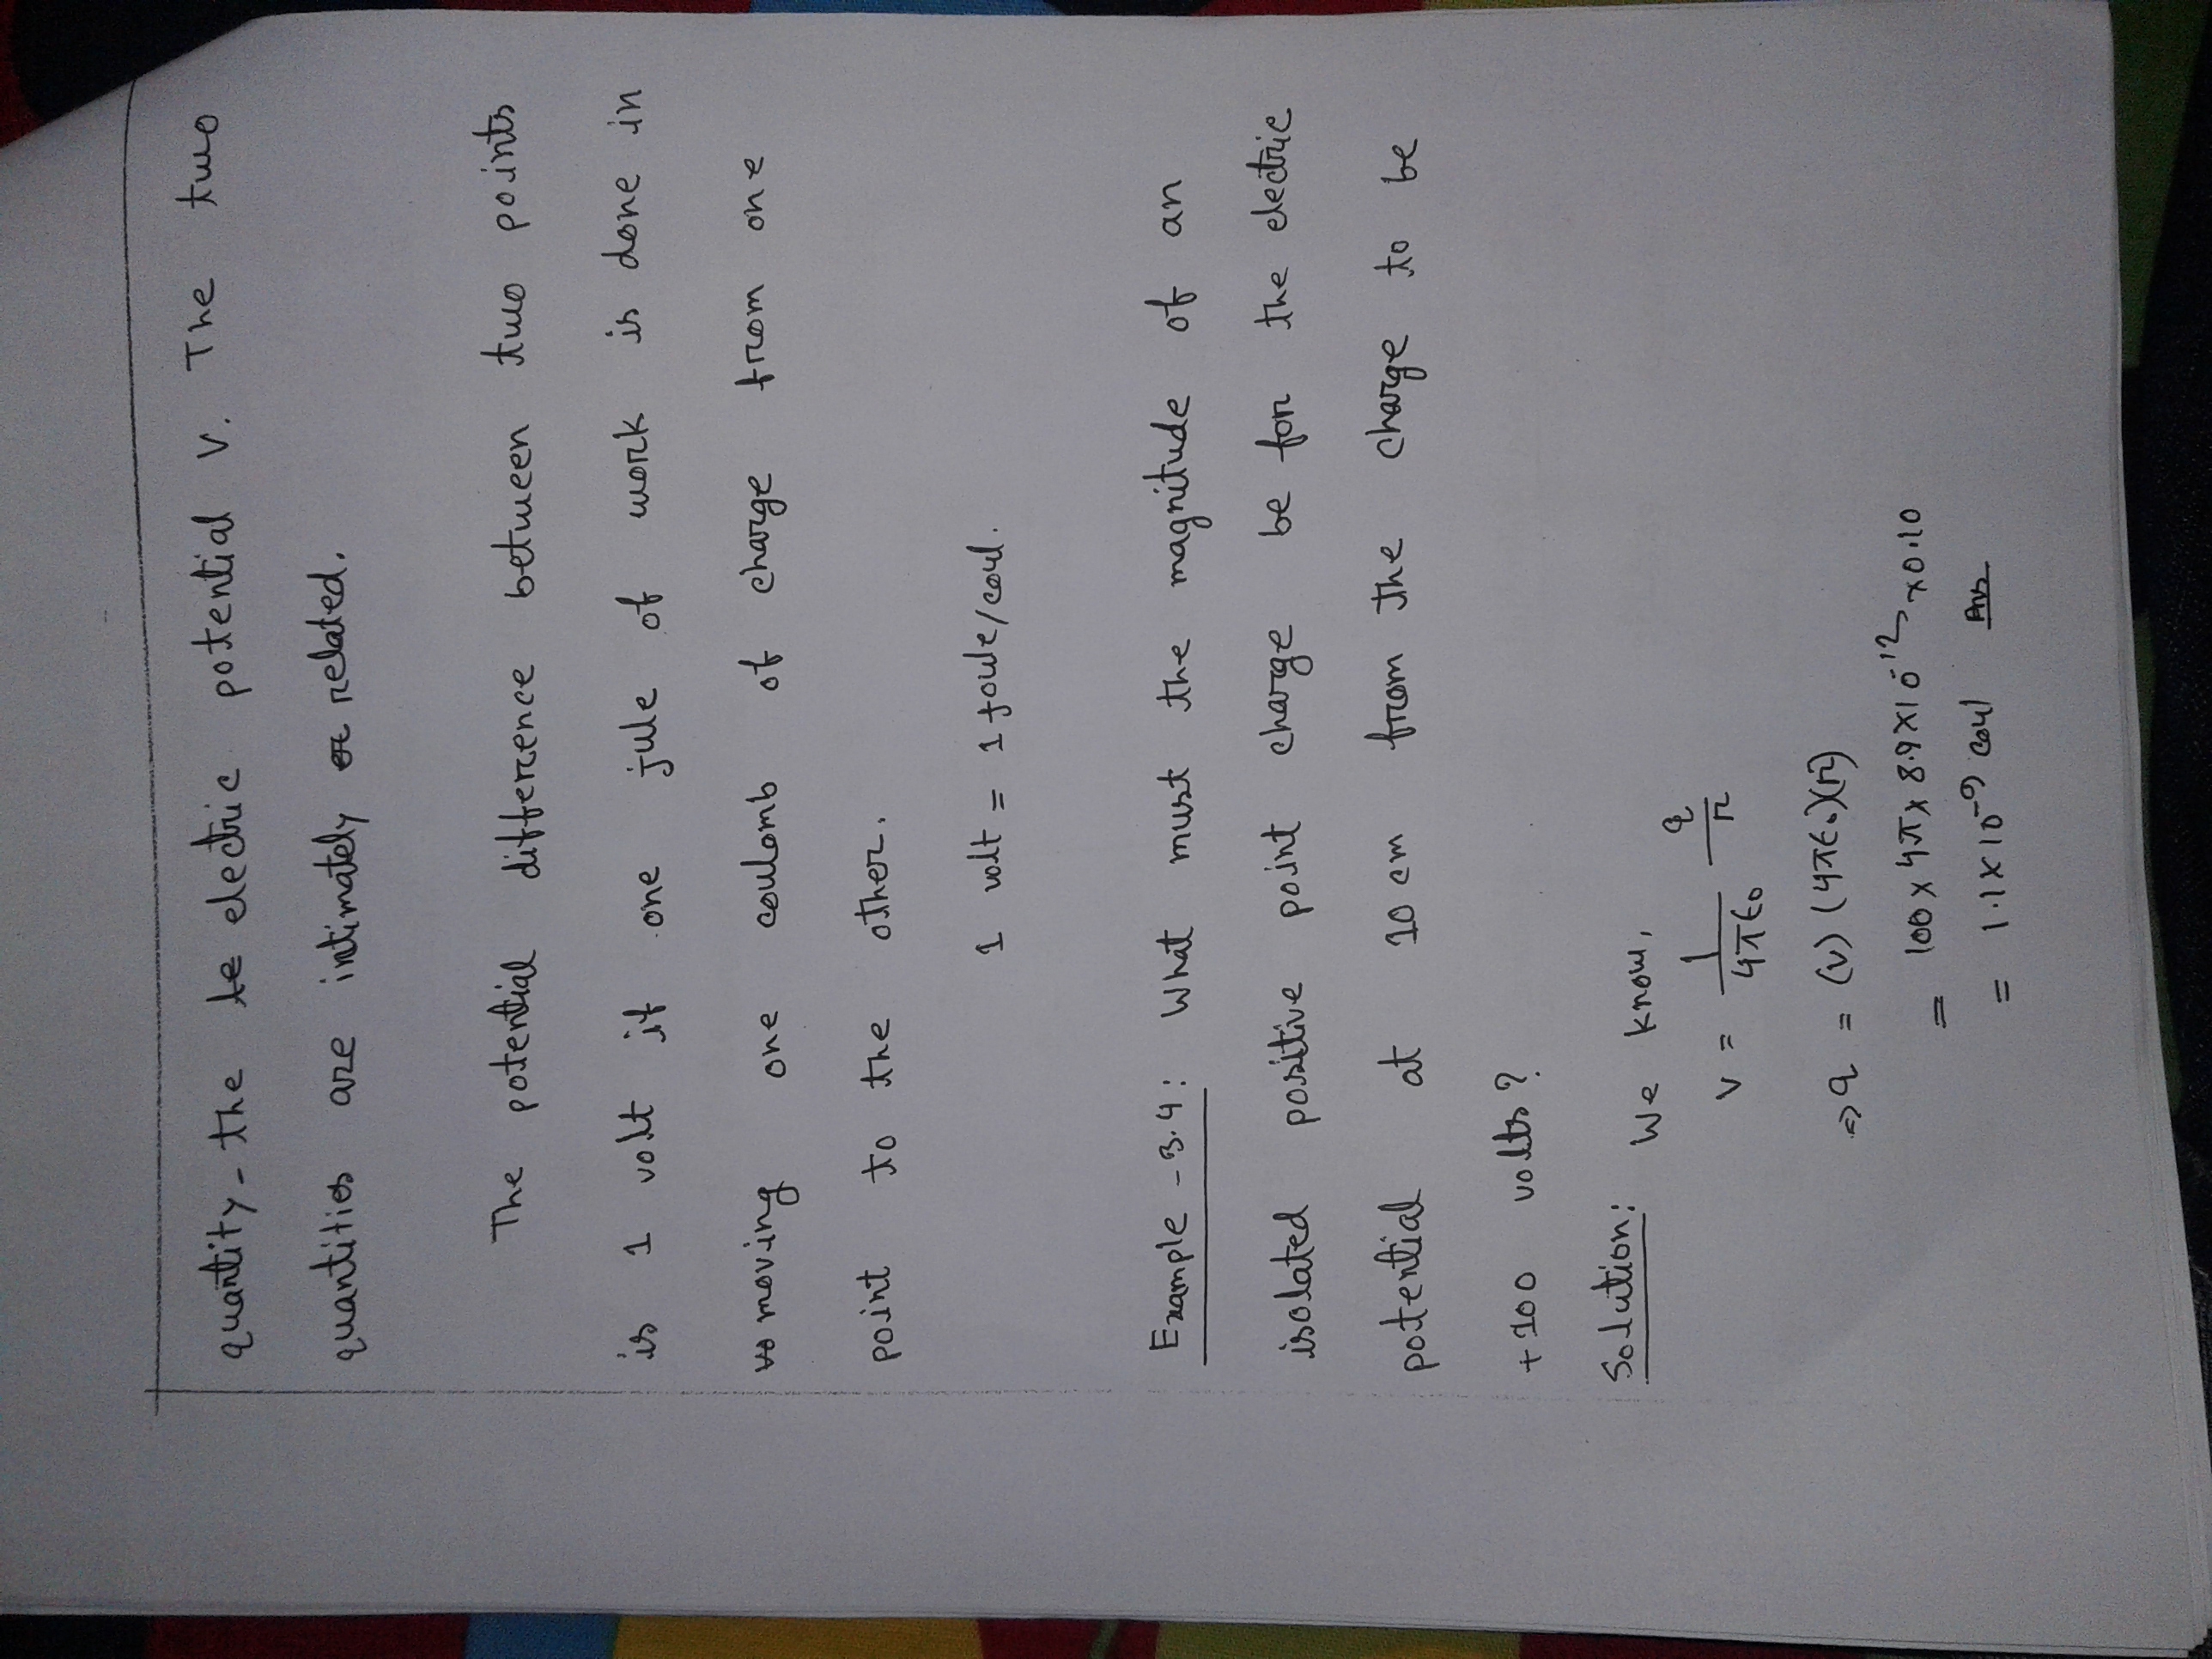 quantity - the te electric potential V. The two
quantities are intimately or related.
The potential difference between two points
is 1 volt if one jule of work is done in
vo moving one coulomb of charge from one
point to the other.
1 volt = 1 joule/coul.
Example - 3.4: What must the magnitude of an
isolated positive point charge be for the electric
potential at 10 cm from the charge to be
+100 volts?
Solution: We know,
V = 1/4πϵ₀ q/r
⇒ q = (V) (4πϵ₀)(r)
= 100 × 4π × 8.9×10⁻¹² ×0.10
= 1.1×10⁻⁹ coul Ans